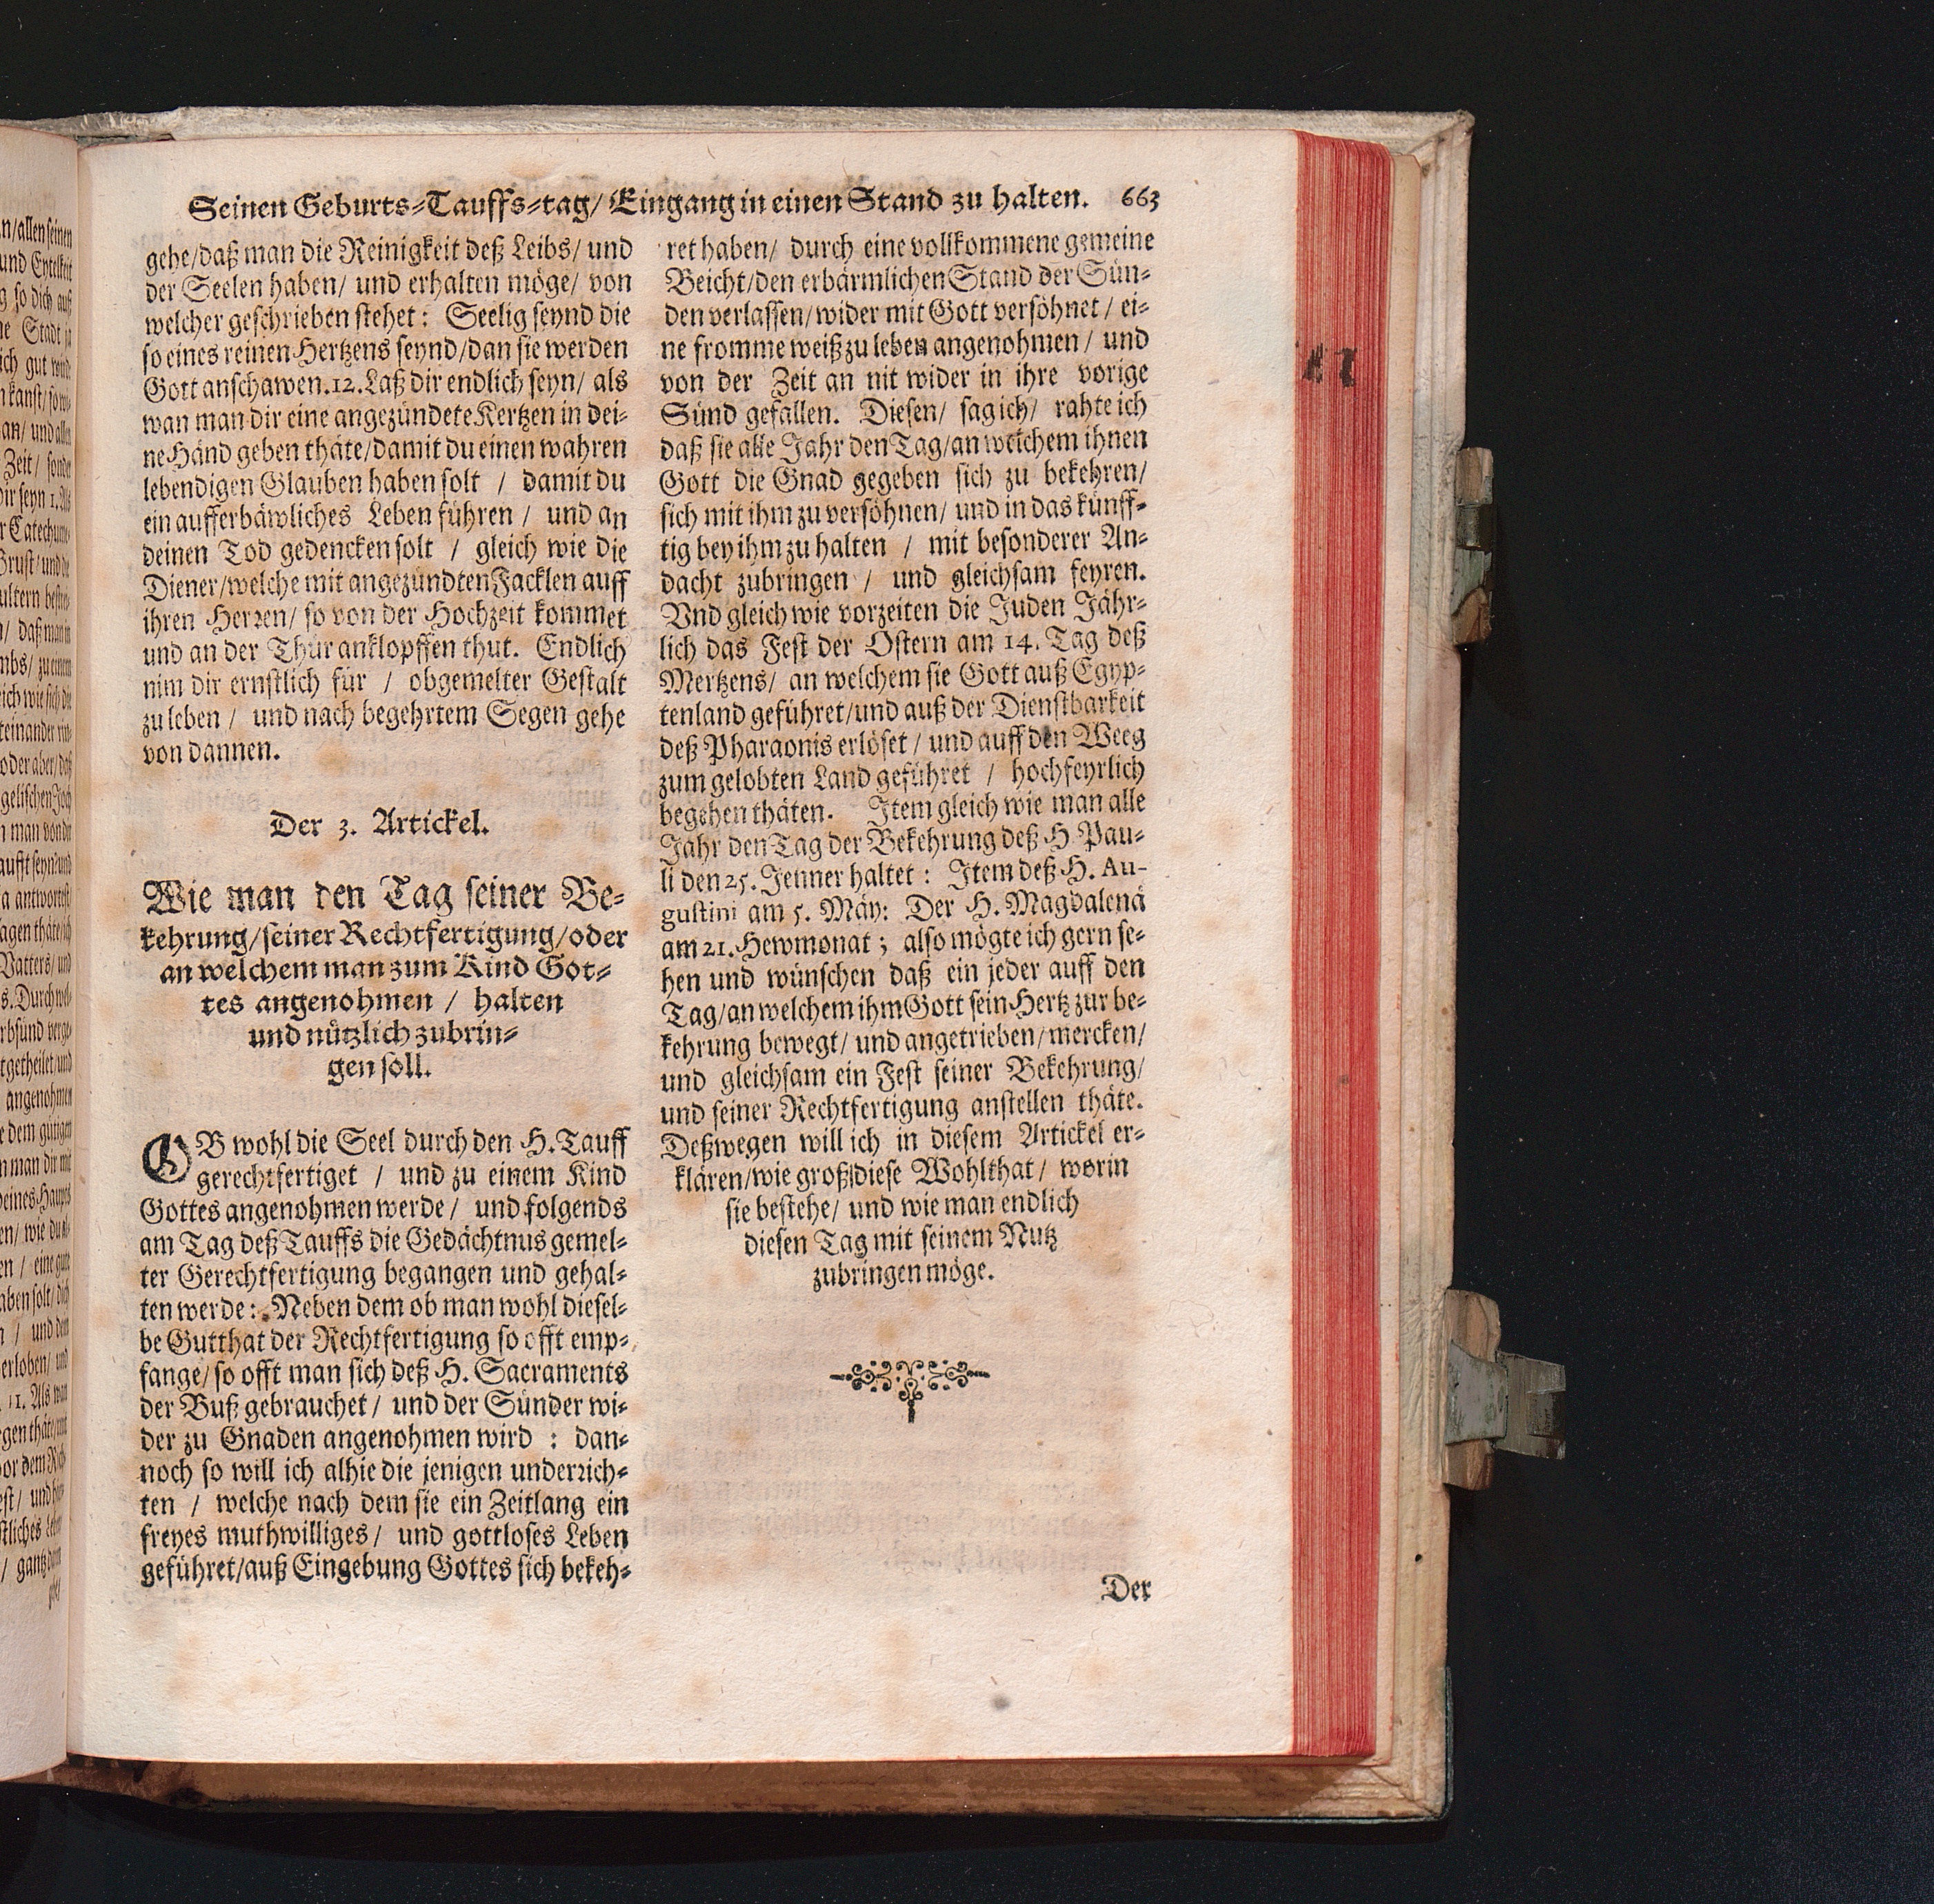 Seinen Geburts-Tauffs-tag/ Eingang in einen Stand zu halten. 663
gehe/daß man die Reinigkeit deß Leibs/ und
der Seelen haben/ und erhalten möge/ von
welcher geschrieben stehet: Seelig seynd die
so eines reinen Hertzens seynd/dan sie werden
Gott anschawen. 12. Laß dir endlich seyn/ als
wan man dir eine angezündete Kertzen in dei-
ne Händ geben thäte/damit du einen wahren
lebendigen Glauben haben solt / damit du
ein aufferbäwliches Leben führen / und an
deinen Tod gedencken solt / gleich wie die
Diener/welche mit angezündten Facklen auff
ihren Herren/ so von der Hochzeit kommet
und an der Thür anklopffen thut. Endlich
nim dir ernstlich für / obgemelter Gestalt
zu leben / und nach begehrtem Segen gehe
von dannen.
Der 3. Artickel.
Wie man den Tag seiner Be-
kehrung/seiner Rechtfertigung/oder
an welchem man zum Kind Got-
tes angenohmen / halten
und nützlich zubrin-
gen soll.
OB wohl die Seel durch den H. Tauff
gerechtfertiget / und zu einem Kind
Gottes angenohmen werde / und folgends
am Tag deß Tauffs die Gedächtnus gemel-
ter Gerechtfertigung begangen und gehal-
ten werde: Neben dem ob man wohl diesel-
be Gutthat der Rechtfertigung so offt emp-
fange/ so offt man sich deß H. Sacraments
der Buß gebrauchet / und der Sünder wi-
der zu Gnaden angenohmen wird : dan-
noch so will ich alhie die jenigen underrich-
ten / welche nach dem sie ein Zeitlang ein
freyes muthwilliges/ und gottloses Leben
geführet/auß Eingebung Gottes sich bekeh-
ret haben/ durch eine vollkommene gemeine
Beicht/den erbärmlichen Stand der Sün-
den verlassen/wider mit Gott versöhnet / ei-
ne fromme weiß zu leben angenohmen / und
von der Zeit an nit wider in ihre vorige
Sünd gefallen. Diesen/ sag ich/ rahte ich
daß sie alle Jahr den Tag/an welchem ihnen
Gott die Gnad gegeben sich zu bekehren/
sich mit ihm zu versöhnen/ und in das künff-
tig bey ihm zu halten / mit besonderer An-
dacht zubringen / und gleichsam feyren.
Vnd gleich wie vorzeiten die Juden Jähr-
lich das Fest der Ostern am 14. Tag deß
Mertzens/ an welchem sie Gott auß Egyp-
tenland geführet/und auß der Dienstbarkeit
deß Pharaonis erlöset / und auff den Weeg
zum gelobten Land geführet / hochfeyrlich
begehen thäten. Item gleich wie man alle
Jahr den Tag der Bekehrung deß H Pau-
li den 25. Jenner haltet : Item deß H. Au-
gustini am 5. Mäy: Der H. Magdalenä
am 21. Hewmonat ; also mögte ich gern se-
hen und wünschen daß ein jeder auff den
Tag/an welchem ihm Gott sein Hertz zur be-
kehrung bewegt/ und angetrieben/mercken/
und gleichsam ein Fest seiner Bekehrung/
und seiner Rechtfertigung anstellen thäte.
Deßwegen will ich in diesem Artickel er-
klären/wie groß diese Wohlthat/ worin
sie bestehe/ und wie man endlich
diesen Tag mit seinem Nutz
zubringen möge.
Der